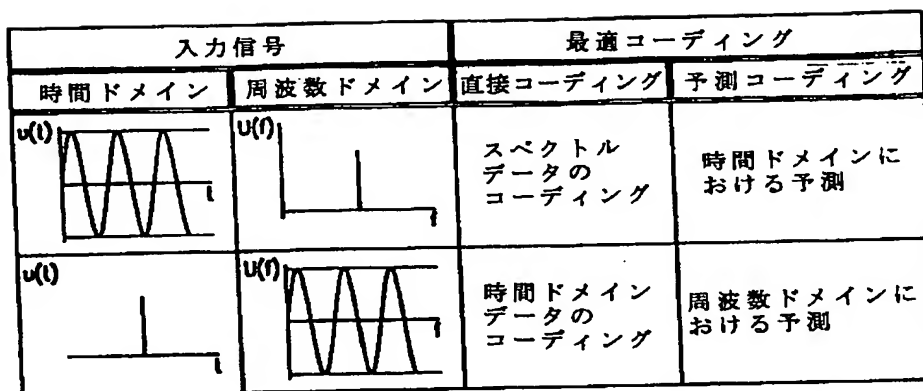 入力信号
最適コーディング
時間ドメイン
周波数ドメイン
直接コーディング
予測コーディング
u(t)
t
U(f)
f
スペクトル
データの
コーディング
時間ドメインに
おける予測
u(t)
t
U(f)
f
時間ドメイン
データの
コーディング
周波数ドメインに
おける予測